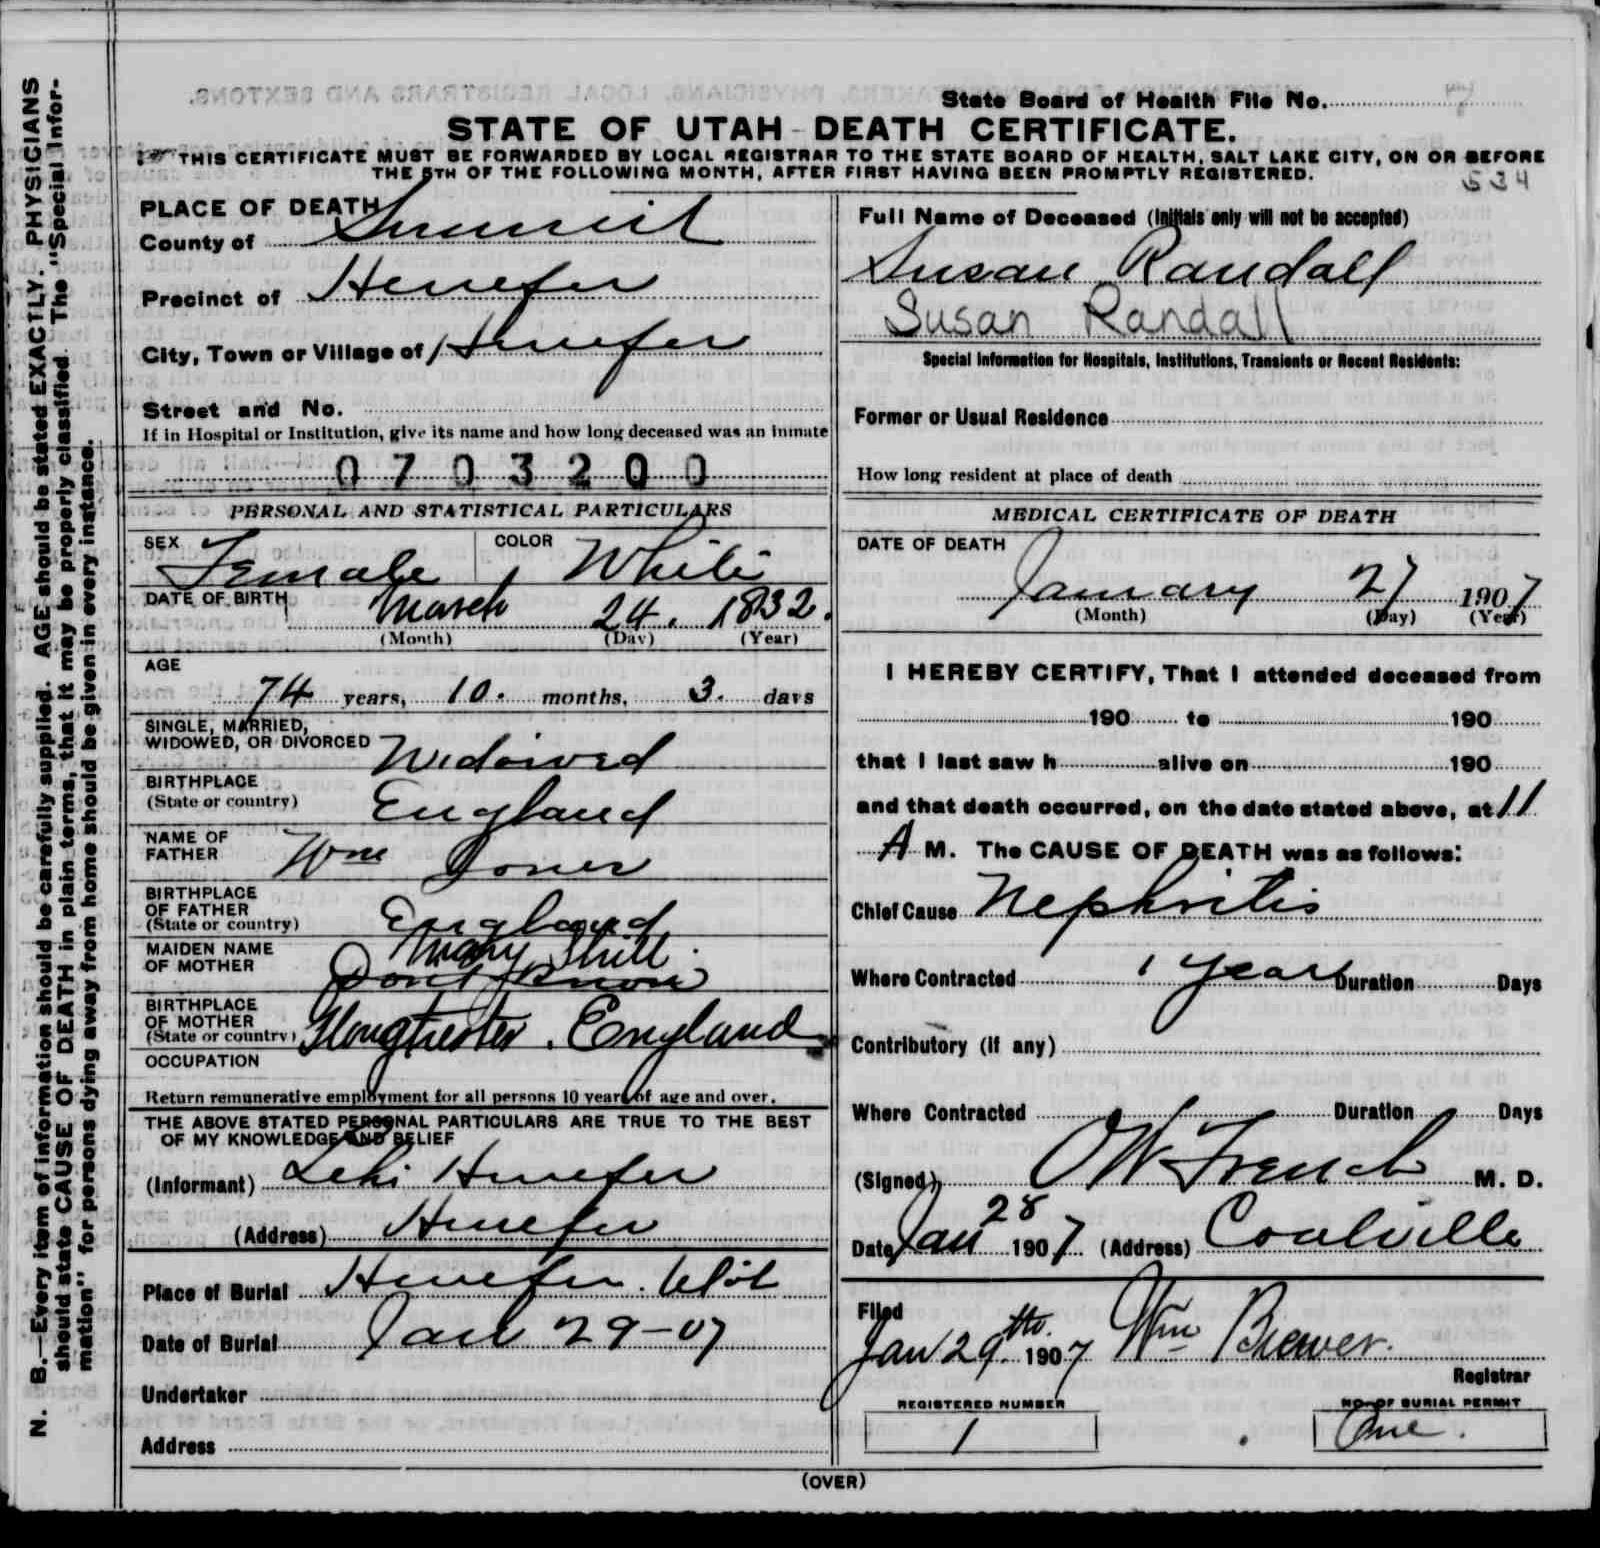 State Board of Health File No. 7
STATE OF UTAH - DEATH CERTIFICATE.
THIS CERTIFICATE MUST BE FORWARDED BY LOCAL REGISTRAR TO THE STATE BOARD OF HEALTH, SALT LAKE CITY, ON OR BEFORE
THE 5TH OF THE FOLLOWING MONTH, AFTER FIRST HAVING BEEN PROMPTLY REGISTERED.
534
N. B.—Every item of information should be carefully supplied. AGE should be stated EXACTLY. PHYSICIANS
should state CAUSE OF DEATH in plain terms, that it may be properly classified. The "Special Infor-
mation" for persons dying away from home should be given in every instance.
PLACE OF DEATH
County of Summit
Precinct of Henefer
City, Town or Village of Henefer
Street and No.
If in Hospital or Institution, give its name and how long deceased was an inmate
0703200
PERSONAL AND STATISTICAL PARTICULARS
SEX Female COLOR White
DATE OF BIRTH March 24. 1832.
(Month) (Day) (Year)
AGE
74 years, 10. months, 3. days
SINGLE, MARRIED,
WIDOWED, OR DIVORCED Widowed
BIRTHPLACE
(State or country) England
NAME OF
FATHER Wm Joner
BIRTHPLACE
OF FATHER
(State or country) England
MAIDEN NAME Mary Shill.
OF MOTHER Dont Know
BIRTHPLACE
OF MOTHER
(State or country) England
OCCUPATION
Return remunerative employment for all persons 10 years of age and over.
THE ABOVE STATED PERSONAL PARTICULARS ARE TRUE TO THE BEST
OF MY KNOWLEDGE AND BELIEF
(Informant) Lehi Henefer
(Address) Henefer
Place of Burial Henefer. Utah
Date of Burial Jan 29-07
Undertaker
Address
Full Name of Deceased (Initials only will not be accepted)
Susan Randall
Susan Randall
Special Information for Hospitals, Institutions, Transients or Recent Residents:
Former or Usual Residence
How long resident at place of death
MEDICAL CERTIFICATE OF DEATH
DATE OF DEATH
January 27 1907
(Month) (Day) (Year)
I HEREBY CERTIFY, That I attended deceased from
190 to 190
that I last saw h alive on 190
and that death occurred, on the date stated above, at 11
A M. The CAUSE OF DEATH was as follows:
Chief Cause Nephritis
Where Contracted 1 year Duration Days
Contributory (if any)
Where Contracted Duration Days
(Signed) OW French M. D.
Date Jan 28 1907 (Address) Coalville
Filed
Jan 29th. 1907 Wm Brewer.
Registrar
REGISTERED NUMBER NO. OF BURIAL PERMIT
1 One.
(OVER)